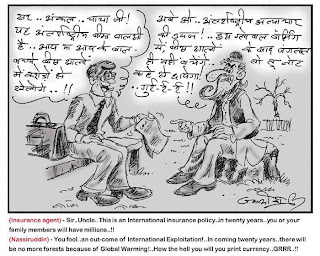 सर.. अंकल.. चाचा जी!
यह अंतर्राष्ट्रीय बीमा पालसी
है.. आप के आपके बाल
बच्चे बीस सालों
में करोड़ों में
खेलेंगे..!!
अबे ओ.. अंतर्राष्ट्रीय अत्याचार
की
ग्लोबल वार्मिंग
में, बीस सालों के बाद जंगलात
ही नहीं बचेंगे.. तो तू नोट
कहाँ से छापेगा!
..गुर्र-र्र-र्र!!
(Insurance agent) - Sir..Uncle..This is an International insurance policy..in twenty years..you or your
family members will have millions..!!
(Nassiruddin) - You fool..an out-come of International Exploitation!..In coming twenty years..there will
be no more forests because of Global Warming!..How the hell you will you print currency..GRRR..!!